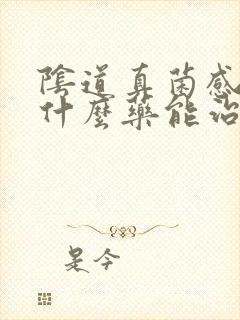 陰道真菌感
什麼藥能治
是今